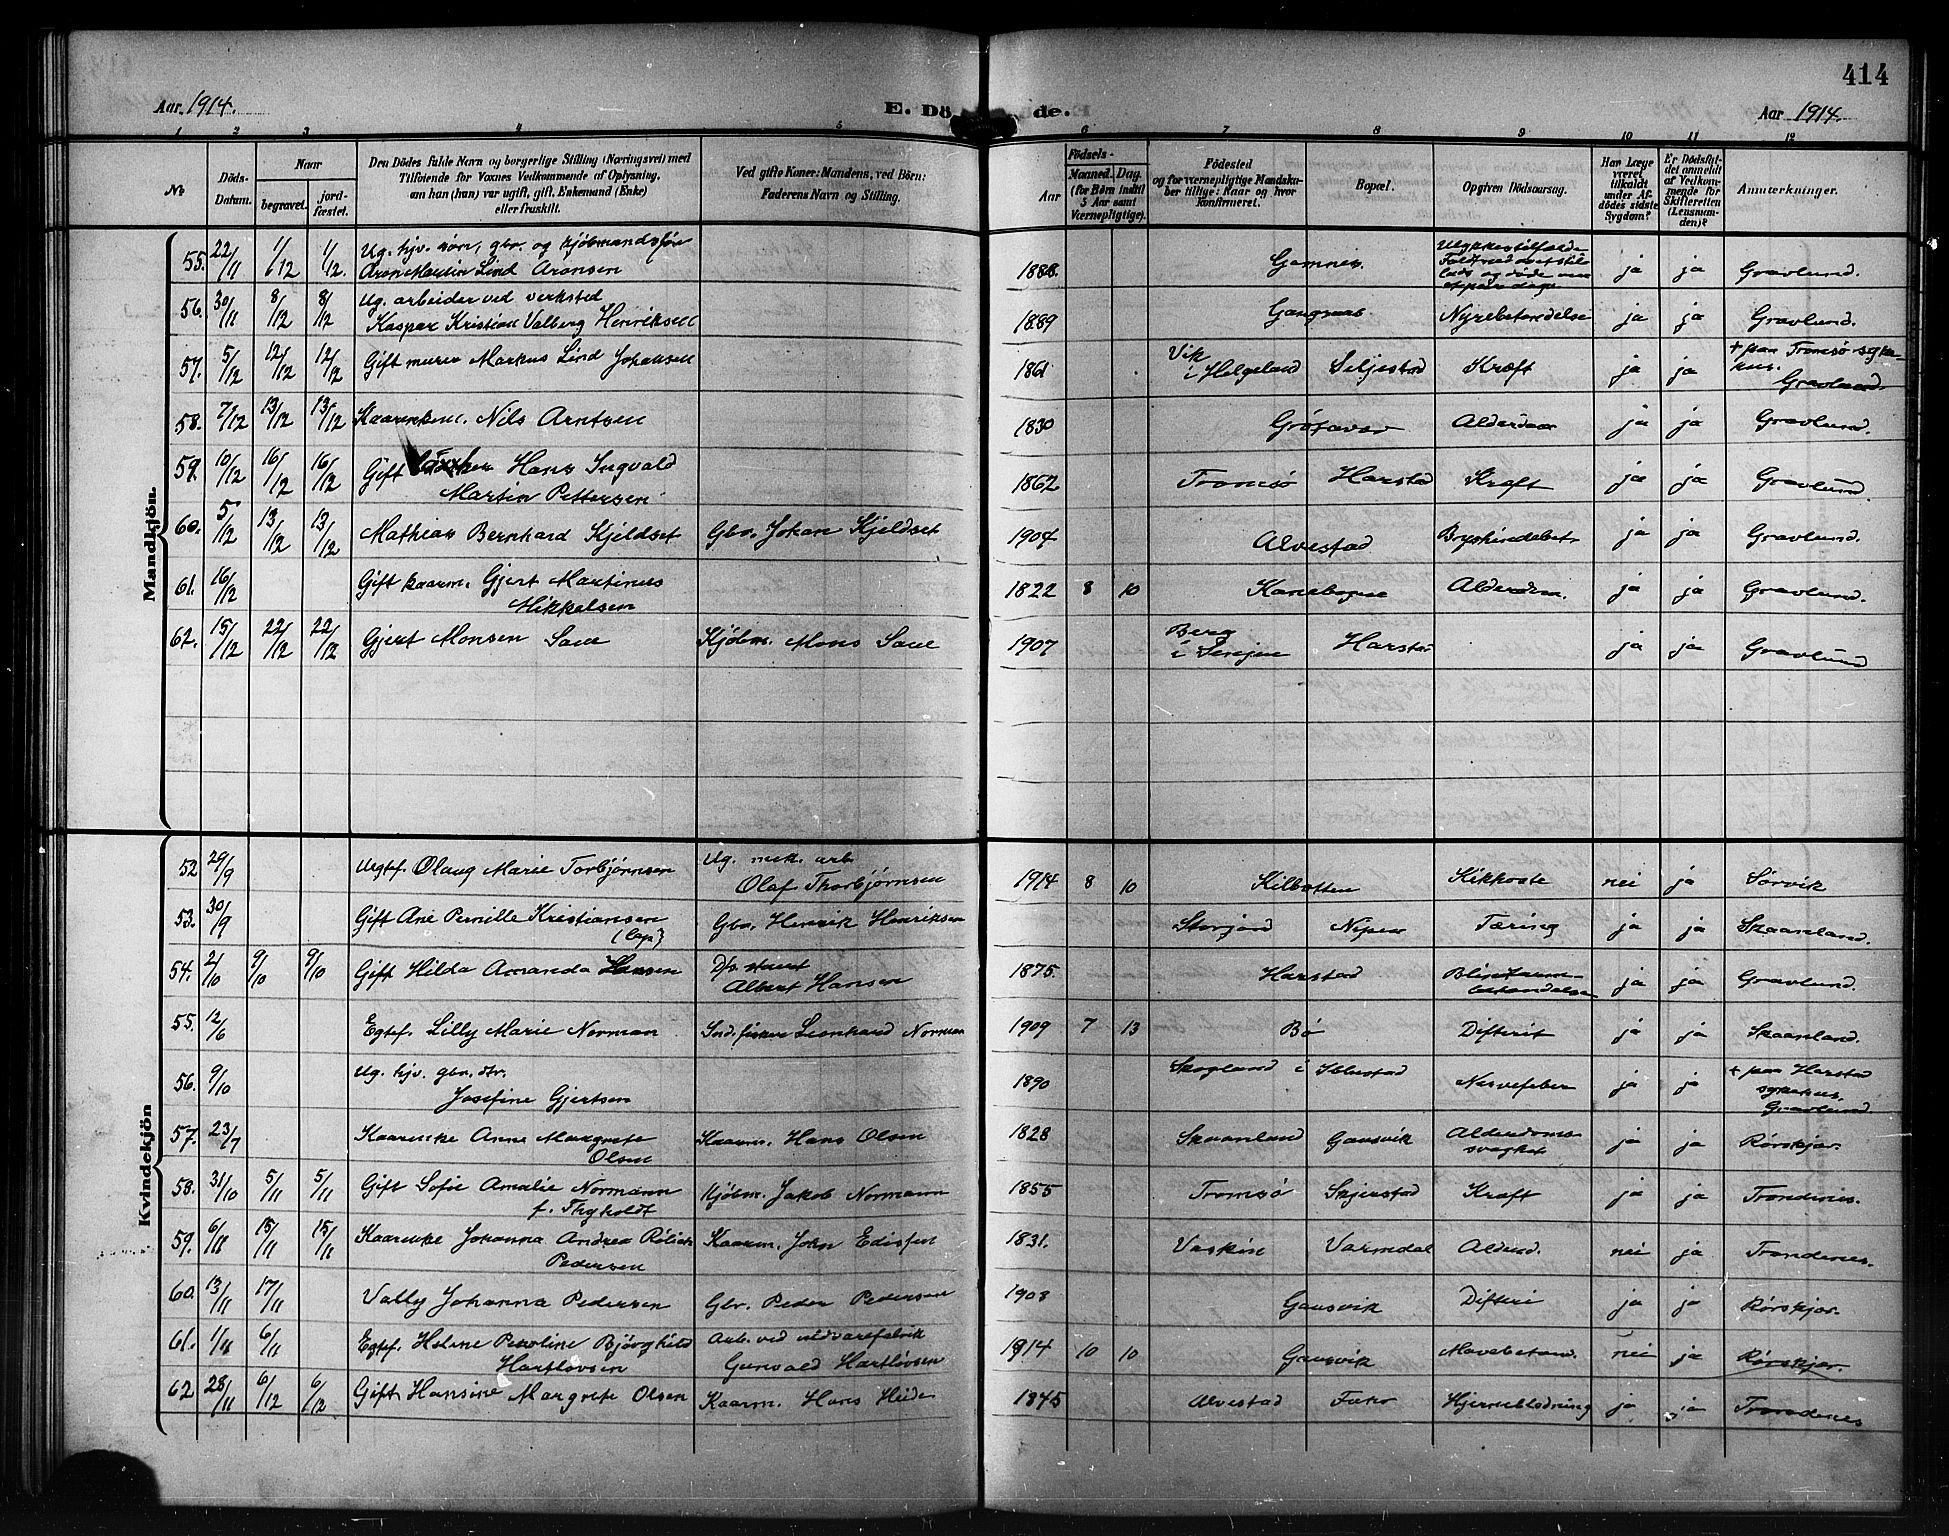 414
Aar 1914.
E. Dö de.
Aar 1914.
1 2 3 4 5 6 7 8 9 10 11 12
No
Döds-
Datum.
Naar
begravet.
jord-
fæstet.
Den Dödes fulde Navn og borgerlige Stilling (Næringsvei) med
Tilföiende for Voxnes Vedkommende af Oplysning,
om han (hun) var ugift, gift, Enkemand (Enke)
eller fraskilt.
Ved gifte Koner: Mandens, ved Börn:
Faderens Navn og Stilling.
Födsels-
Aar
Maaned. Dag.
(for Börn indtil
5 Aar samt
Værnepligtige).
Födested
og for værnepligtige Mandska-
ber tillige: Naar og hvor
konfirmeret.
Bopæl.
Opgiven Dödsaarsag.
Har Læge
været
tilkaldt
under Af-
dödes sidste
Sygdom?
Er Dödsfal-
det anmeldt
af Vedkom-
mende for
Skifteretten
(Lensman-
den)?
Anmærkninger.
Mandkjön.
55. 22/11 1/12 1/12. Ug. hjv. sön, gbr. og kjöbmandsfor
Aron Martin Lind Aronsen 1888. Gamnes. Ulykkestilfælde
ja ja Gravlund.
56. 30/11 8/12 8/12 Ug. arbeider ved verksted
Kaspar Kristian Valberg Henriksen 1889 Gangsaas Nyrebetændelse ja ja Gravlund.
57. 5/12 12/12 12/12 Gift murer Markus Lind Johansen 1861 Vik
i Helgeland Seljestad Kræft ja ja + paa Tromsø syke-
hus.
Gravlund
58. 7/12 13/12 13/12 Kaarenkem. Nils Arntsen 1830 Grøtavær Alderdom ja ja Gravlund.
59. 10/12 16/12 16/12 Gift Hans Ingvald
Martin Pettersen 1862 Tromsø Harstad Kræft ja ja Gravlund.
60. 5/12 13/12 13/12 Mathias Bernhard Kjeldset Gbr. Johan Kjeldset 1904 Alvestad Brysthindebet. ja ja Gravlund.
61. 16/12 Gift kaarm. Gjert Martinus
Mikkelsen 1822 8 10 Kanebogen Alderdom. ja ja Gravlund.
62. 15/12 22/12 22/12 Gjert Monsen Saue Kjöbm. Mons Saue 1907 Berg
i Senjen Harstad ja ja Gravlund
Kvindekjön
52 29/9 Uegtef. Olaug Marie Torbjørnsen Ug. mek. arb.
Olaf Thorbjørnsen 1914 8 10 Kilbotten Kikhoste nei ja Sørvik
53. 30/9 Gift Ane Pernille Kristiansen
(lap) Gbr. Henrik Henriksen Storjord Nipen Tæring ja ja Skaanland.
54. 2/10 9/10 9/10 Gift Hilda Amanda Hansen
Albert Hansen 1875. Harstad Blindtarm-
betændelse ja ja Gravlund.
55. 12/6 Egtef. Lilly Marie Norman Ind. fisker Leonhard Norman 1909 7 13 Bø Difterit ja ja Skaanland.
56. 9/10 Ug. hjv. gbr. dtr.
Josefine Gjertsen 1890 Skogland i Ibbestad Nervefeber ja ja + paa Harstad
sykehus.
Gravlund
57. 23/7 Kaarenke Anne Margrete
Olsen Kaarm. Hans Olsen 1828 Skaanland Gausvik Alderdoms-
svaghet ja ja Rørskjær.
58. 31/10 5/11 5/11 Gift Sofie Amalie Normann
f. Thyholdt Kjöbm. Jakob Normann 1855 Tromsø Skjerstad Kræft ja ja Trondenes.
59. 6/11 15/11 15/11 Kaarenke Johanna Andrea
Pedersen Kaarm. John 1831. Varmdal Alderd. nei ja Trondenes.
60. 13/11 17/11 Vally Johanna Pedersen Gbr. Peder Pedersen 1908 Gausvik Difteri ja ja Rørskjær.
61. 1/11 6/11 Egtef. Helene Paroline Bjørghild
Hartløvsen Arb. ved uldvarefabrik
Gunvald Hartløvsen 1914 10 10 Gausvik Mavebetænd. nei ja Rørskjær.
62 28/11 6/12 6/12 Gift Hansine Margrete Olsen Kaarm. Hans Heide 1845 Alvestad Hjerneblødning ja ja Trondenes